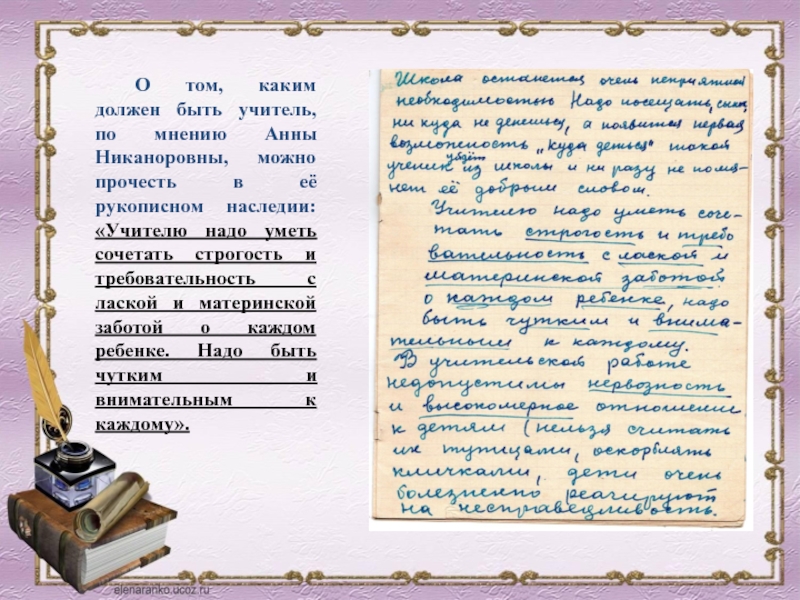 О том, каким
должен быть учитель,
по мнению Анны
Никаноровны, можно
прочесть в её
рукописном наследии:
«Учителю надо уметь
сочетать строгость и
требовательность с
лаской и материнской
заботой о каждом
ребенке. Надо быть
чутким и
внимательным к
каждому».
Школа останется очень неприятной
необходимостью Надо посещать,
ни куда не денешься, а появится первая
возможность „куда деться" такой
ученик уйдёт из школы и ни разу не помя-
нет её добрым словом.
Учителю надо уметь соче-
тать строгость и требо
вательность с лаской и
материнской заботой
о каждом ребенке, надо
быть чутким и внима-
тельным к каждому.
В учительской работе
недопустимы нервозность
и высокомерное отношение
к детям (нельзя считать
их тупицами, оскорблять
кличками, дети очень
болезненно реагируют
на несправедливость.
elenaranko.ucoz.ru